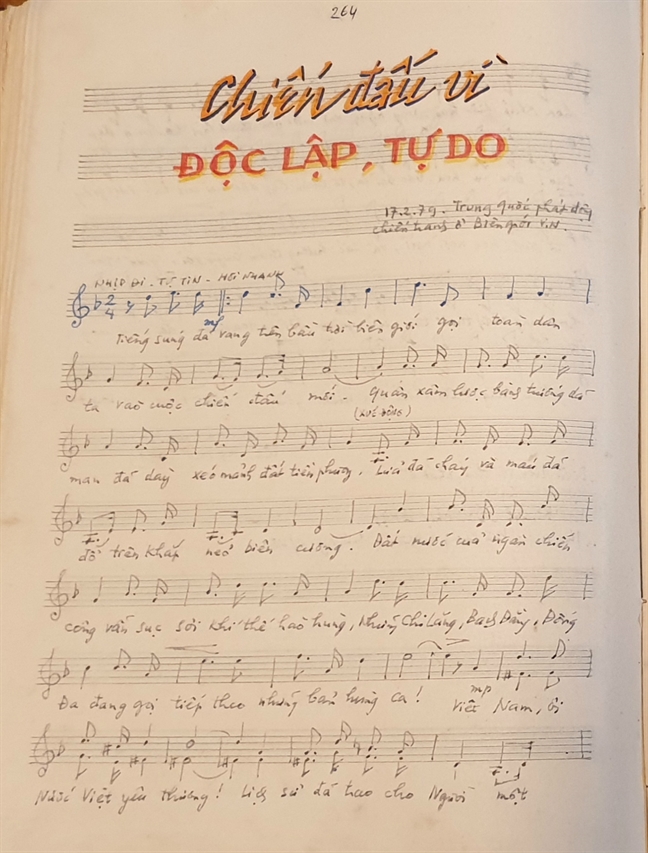 264
Chiến đấu vì
ĐỘC LẬP, TỰ DO
17.2.79. Trung quốc phát động
chiến tranh ở Biên giới V.N.
NHỊP ĐI - TỰ TIN - HƠI NHANH
2
4
Tiếng súng đã vang trên bầu trời biên giới gọi toàn dân
mf
ta vào cuộc chiến đấu mới. Quân xâm lược bành trướng dã
(XÚC ĐỘNG)
man đã dày xéo mảnh đất tiền phương. Lửa đã cháy và máu đã
đổ trên khắp nẻo biên cương. Đất nước của ngàn chiến
công vẫn sục sôi khí thế hào hùng, Những Chi Lăng, Bạch Đằng, Đống
Đa đang gọi tiếp theo những bản hùng ca! Việt Nam, ôi
mp
Nước Việt yêu thương! Lịch sử đã trao cho Người một